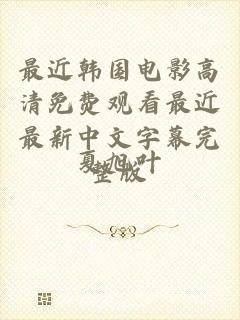 最近韩国电影高
清免费观看最近
最新中文字幕完
整版
夏旭叶